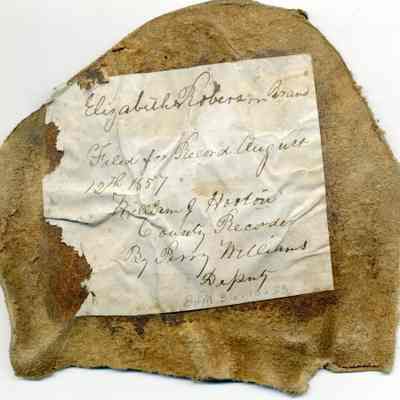 Elizabeth Roberson Brand
Filed for Record August
12th 1857
William J Horton
County Recorder
By Perry Williams
Deputy